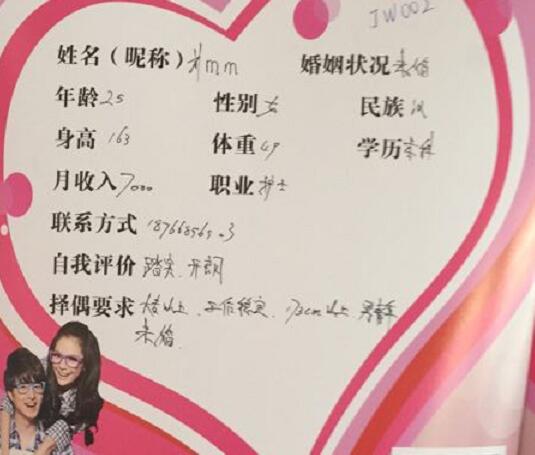 JW002
姓名（昵称）mm 婚姻状况 未婚
年龄 25 性别 女 民族 汉
身高 163 体重 49 学历 本科
月收入 7000 职业 护士
联系方式
自我评价 踏实、开朗
择偶要求 以上、工作稳定、以上
未婚